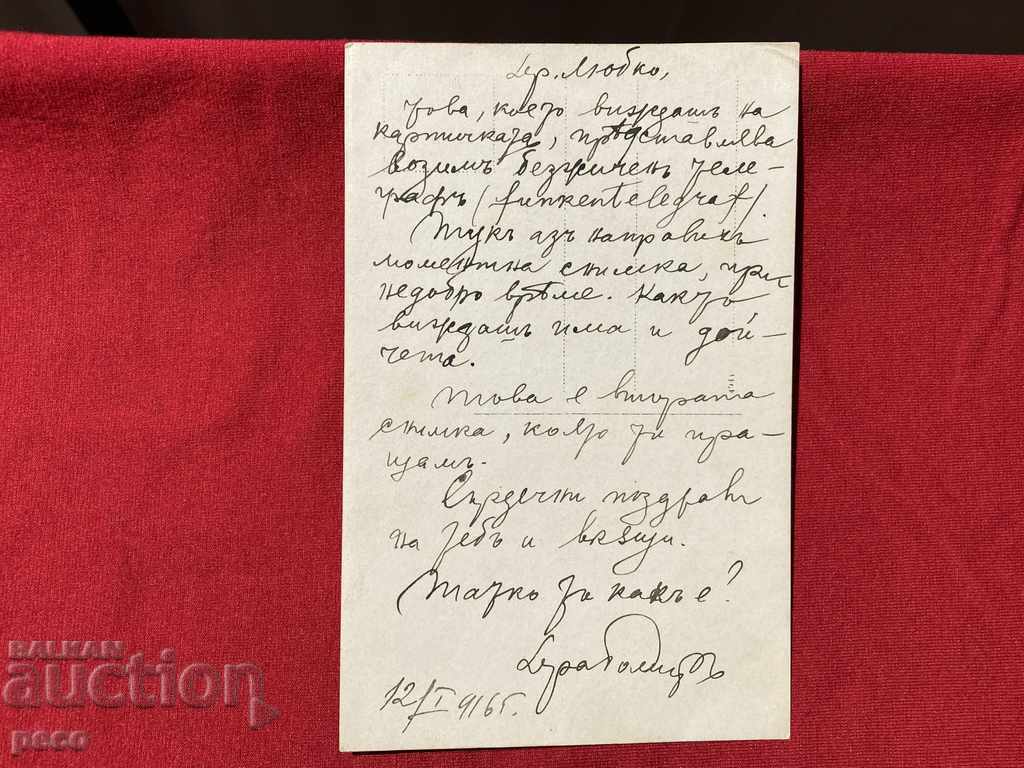 Др. Любко,
Това, което виждашъ на
картичката, прѣдставлява
возимъ безжиченъ теле-
графъ /funkentelegraf/.
Тукъ азъ направихъ
моментна снимка, при
недобро врѣме. Какъто
виждашъ има и дой-
чета.
Това е втората
снимка, която ти пра-
щамъ.
Сърдечни поздрави
на тебъ и
Татко ти какъ е?
12/I 916 г.
BALKAN
auction
peco